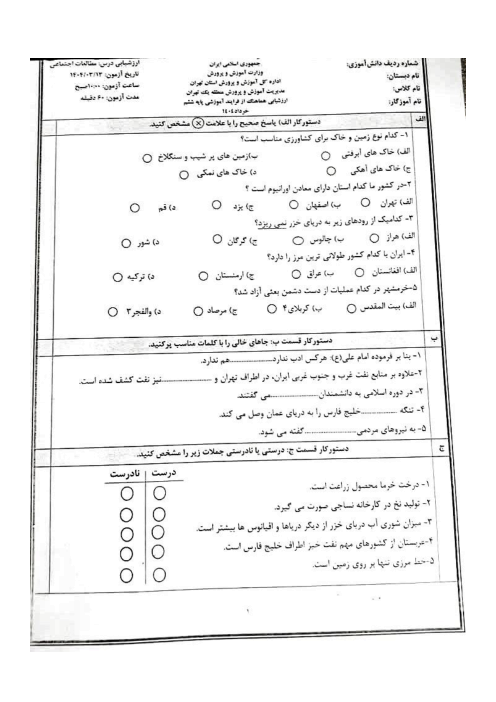 جمهوری اسلامی ایران
وزارت آموزش و پرورش
اداره کل آموزش و پرورش استان تهران
مدیریت آموزش و پرورش منطقه یک تهران
ارزشیابی هماهنگ از فرایند آموزشی پایه ششم
خرداد ۱۴۰۴
شماره ردیف دانش‌آموزی:
نام دبستان:
نام کلاس:
نام آموزگار:
ارزشیابی درس: مطالعات اجتماعی
تاریخ آزمون: ۱۴۰۴/۰۳/۱۳
ساعت آزمون: ۱۰:۰۰صبح
مدت آزمون: ۶۰ دقیقه
الف
دستورکار الف) پاسخ صحیح را با علامت ⊗ مشخص کنید.
۱- کدام نوع زمین و خاک برای کشاورزی مناسب است؟
الف) خاک های آبرفتی ب)زمین های پر شیب و سنگلاخ
ج) خاک های آهکی د) خاک های نمکی
۲-در کشور ما کدام استان دارای معادن اورانیوم است ؟
الف) تهران ب) اصفهان ج) یزد د) قم
۳- کدامیک از رودهای زیر به دریای خزر نمی ریزد؟
الف) هراز ب) چالوس ج) گرگان د) شور
۴- ایران با کدام کشور طولانی ترین مرز را دارد؟
الف) افغانستان ب) عراق ج) ارمنستان د) ترکیه
۵-خرمشهر در کدام عملیات از دست دشمن بعثی آزاد شد؟
الف) بیت المقدس ب) کربلای۴ ج) مرصاد د) والفجر۳
ب
دستورکار قسمت ب: جاهای خالی را با کلمات مناسب پرکنید.
۱- بنا بر فرموده امام علی(ع): هرکس ادب ندارد....................هم ندارد.
۲-علاوه بر منابع نفت غرب و جنوب غربی ایران، در اطراف تهران و ....................نیز نفت کشف شده است.
۳- در دوره اسلامی به دانشمندان ....................می گفتند.
۴- تنگه ....................خلیج فارس را به دریای عمان وصل می کند.
۵- به نیروهای مردمی....................گفته می شود.
ج
دستورکار قسمت ج: درستی یا نادرستی جملات زیر را مشخص کنید.
درست نادرست
۱- درخت خرما محصول زراعت است.
۲- تولید نخ در کارخانه نساجی صورت می گیرد.
۳- میزان شوری آب دریای خزر از دیگر دریاها و اقیانوس ها بیشتر است.
۴-عربستان از کشورهای مهم نفت خیز اطراف خلیج فارس است.
۵-خط مرزی تنها بر روی زمین است.
۱